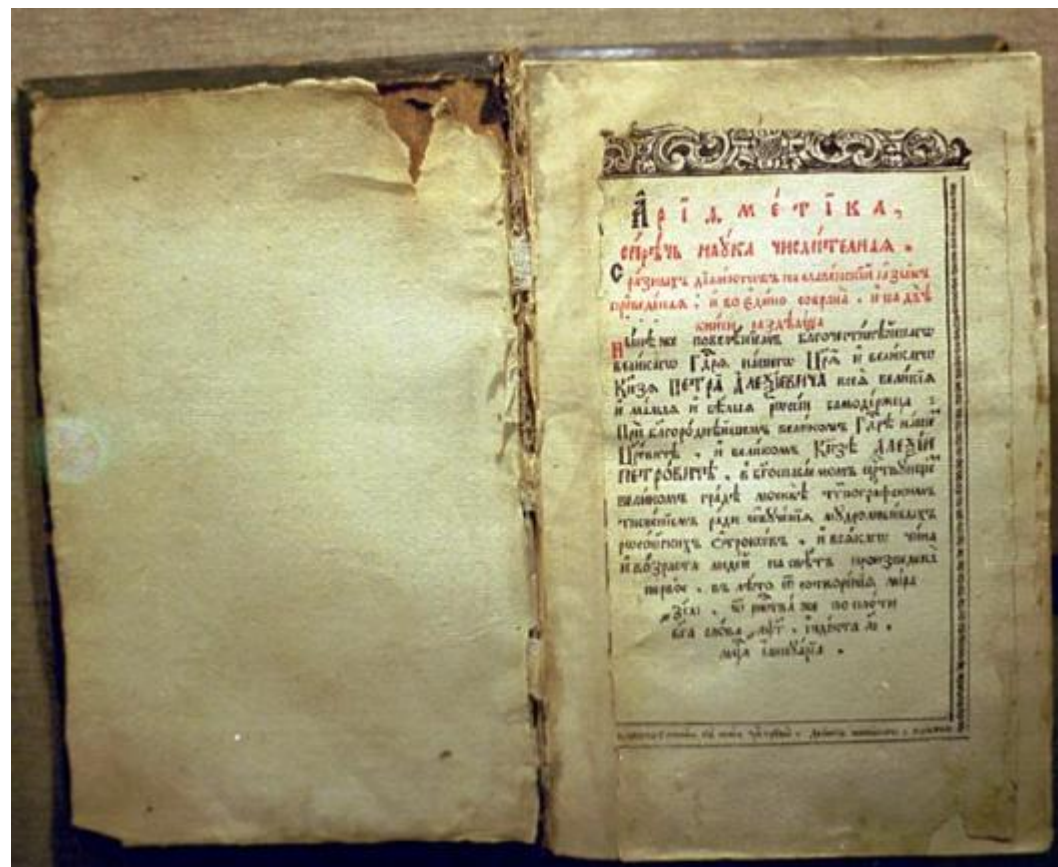 А҆рїѳме́тїка,
си́рѣчь наꙋ́ка числи́телная.
С ра́зныхъ дїале́ктѡвъ на слаⷡ҇е́нскїй ꙗ҆зы́къ
преведе́ная, и҆ во є҆ди́но собрана̀, и҆ на двѣ̀
кни̑ги раздѣлена̀
Ны́нѣ же повелѣ́нїемъ благочести́вѣйшагѡ
вели́кагѡ Гдⷭ҇рѧ̀ на́шегѡ Цр҃ѧ̀ и҆ вели́кагѡ
Кн҃зѧ ПЕТРА̀ А҆ЛЕѮІ́ЕВИЧА всеѧ̀ вели́кїѧ
и҆ ма́лыѧ и҆ бѣ́лыѧ рѡссі́и самоде́ржца :
Прѝ бл҃горо́днѣйшемъ вели́комъ Гдⷭ҇рѣ̀ на́шемъ
Цр҃е́вичѣ, и҆ вели́комъ Кн҃зѣ А҆ЛЕѮІ́И
ПЕТРО́ВИЧѢ, в̾ бг҃оспаса́емомъ црⷭ҇твꙋющемъ
вели́комъ гра́дѣ москвѣ̀ тѷпогра́фскимъ
тисне́нїемъ ра́ди ѡ҆бꙋче́нїѧ мꙋдролюби́выхъ
рѡссі́йскихъ ѻ҆́трокѡвъ, и҆ всѧ́кагѡ чи́на
и҆ во́зраста люде́й на свѣ́тъ произведена̀
пе́рвое, въ лѣ́то ѿ сотворе́нїѧ мі́ра
҂зсаі, ѿ ржⷭ҇тва̀ же по пло́ти
бг҃а сло́ва ҂аѱг, і҆нді́кта аі,
мцⷭ҇а і҆аннꙋа́рїа.